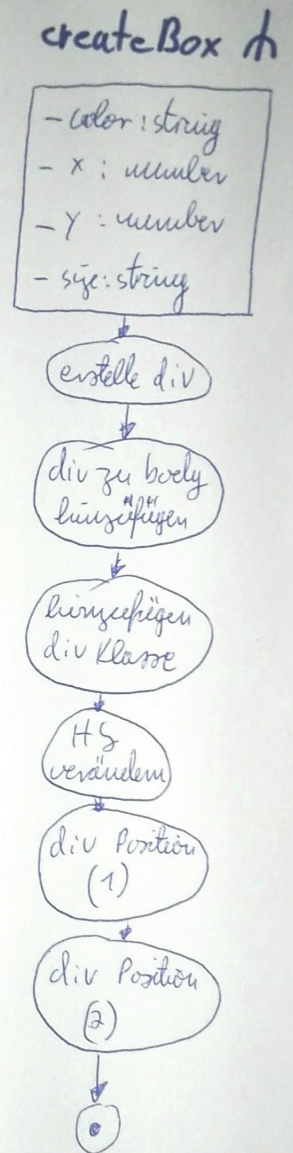 createBox
- color : string
- x : number
- y : number
- size : string
erstelle div
div zu body
hinzufügen
hinzufügen
div Klasse
HG
verändern
div Position
(1)
div Position
(2)